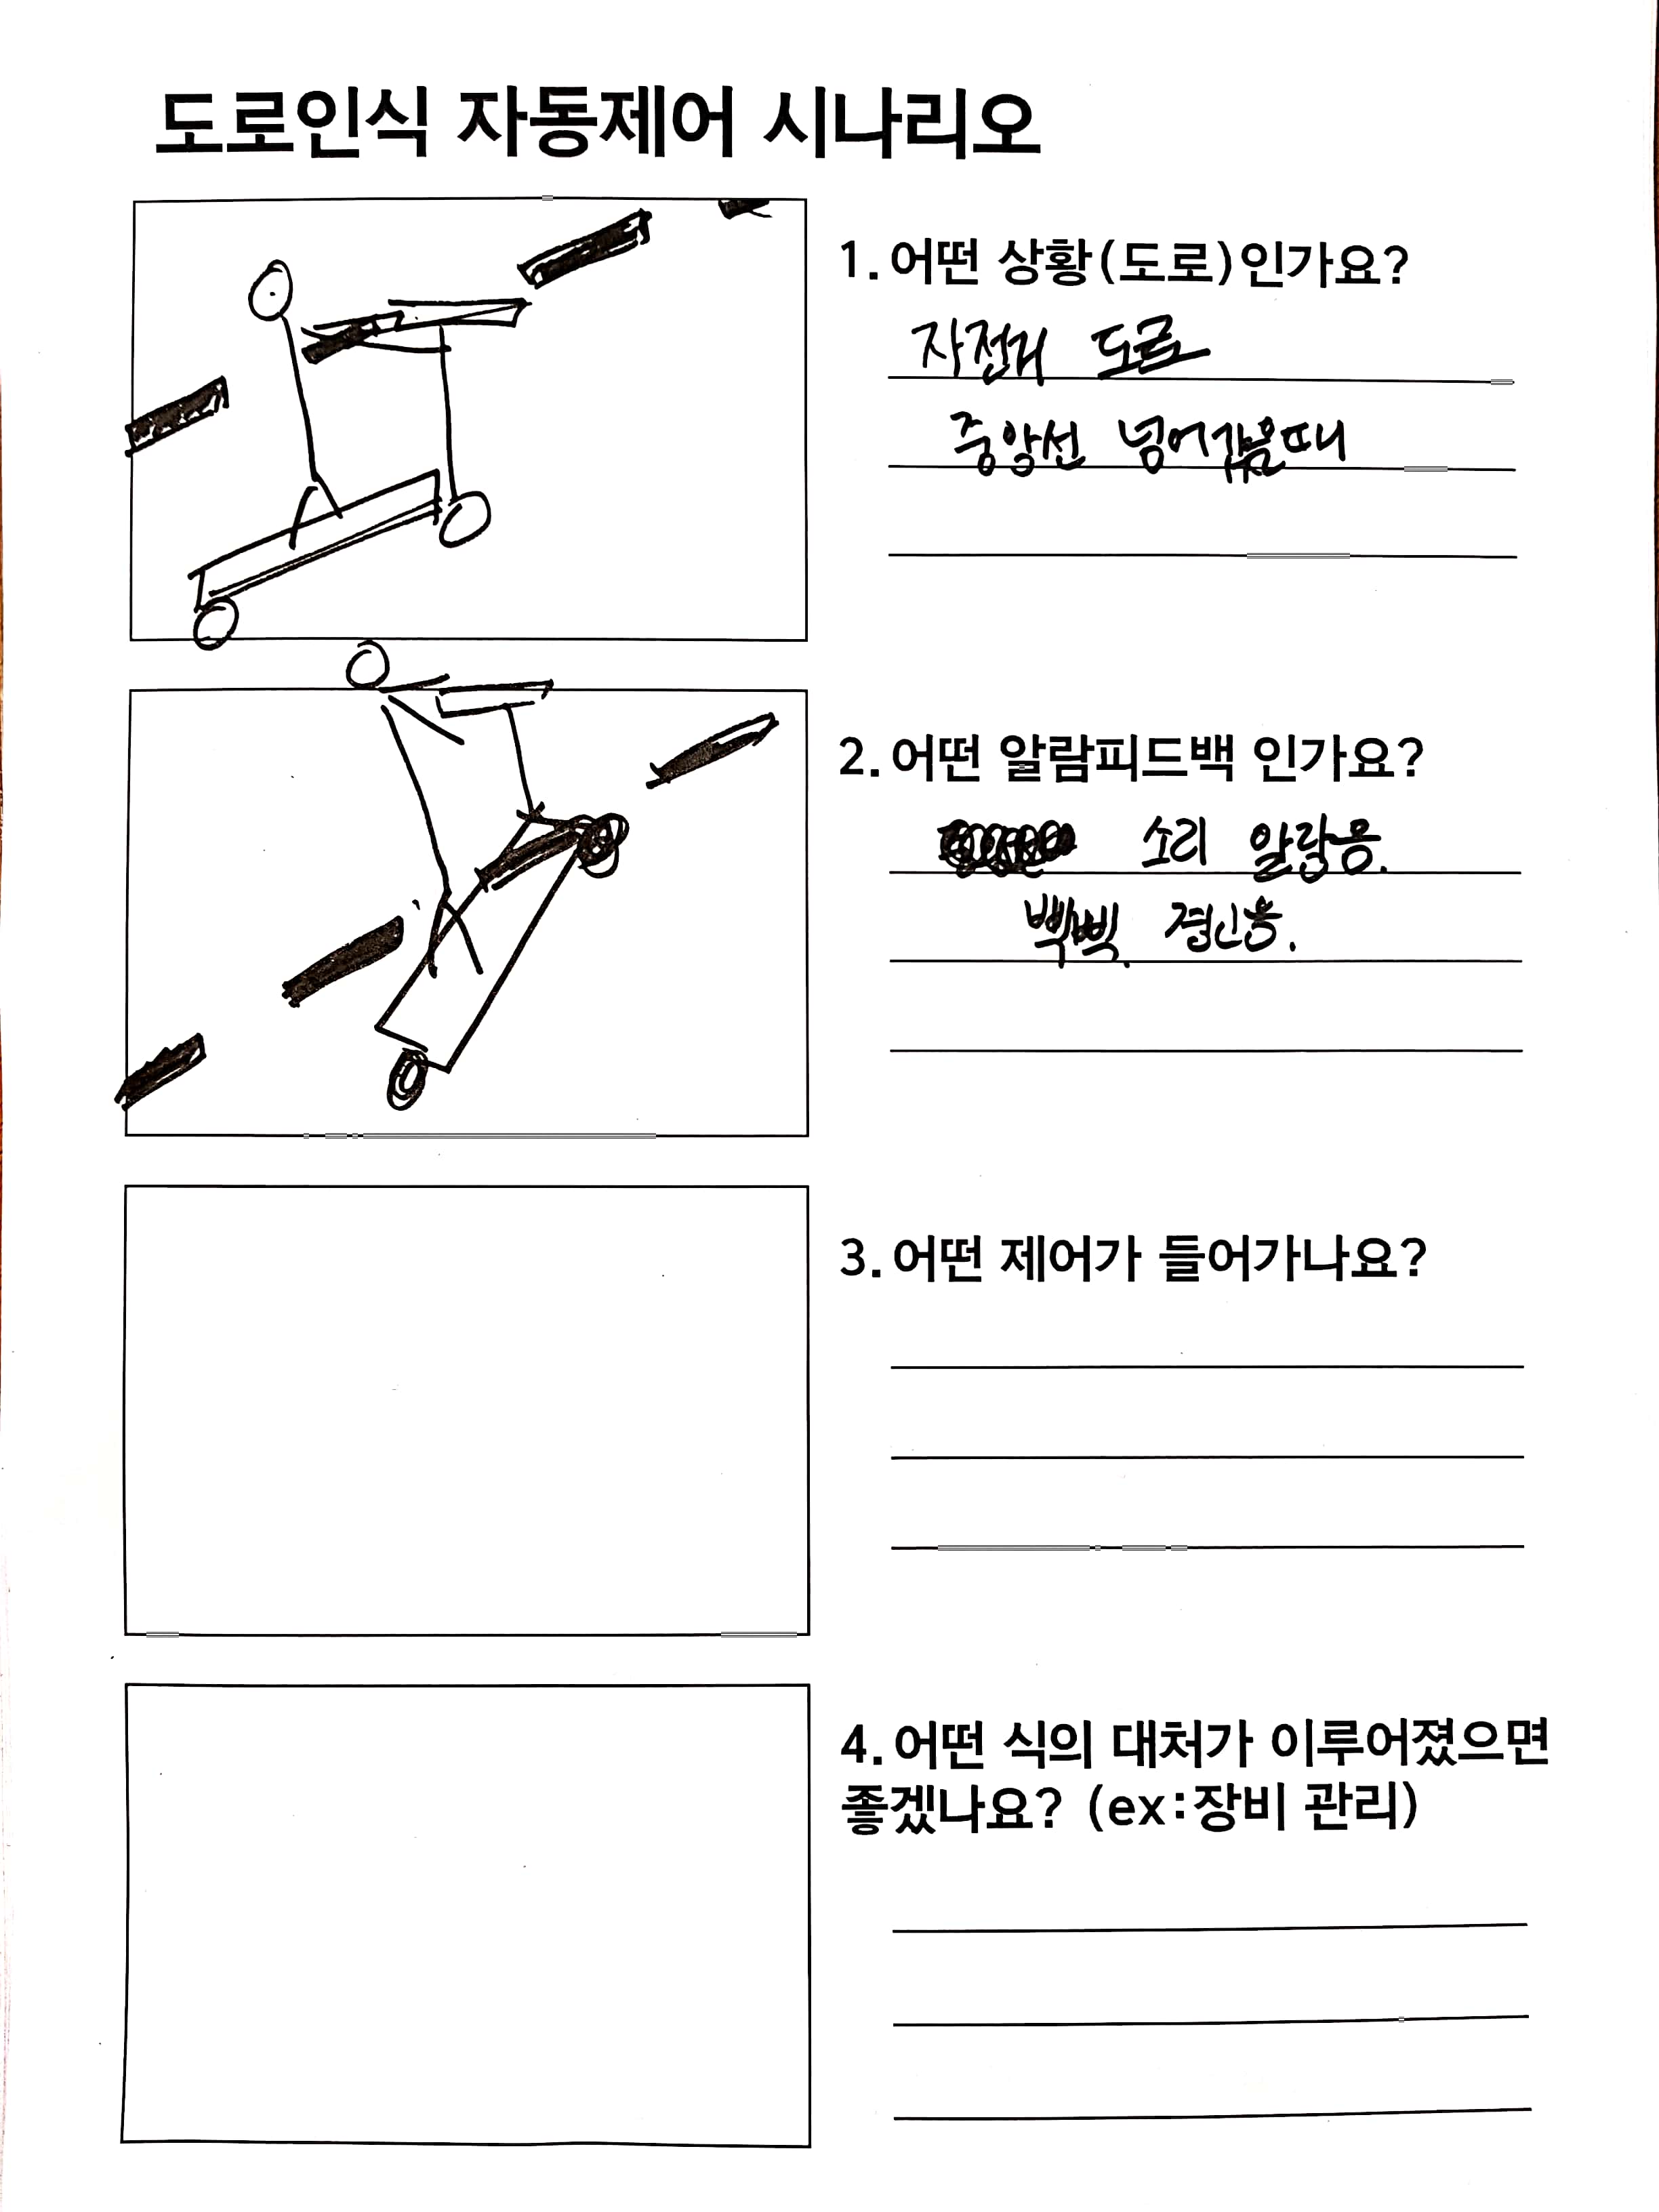 도로인식 자동제어 시나리오
1. 어떤 상황(도로)인가요?
자전거 도로
중앙선 넘어갔을때
2. 어떤 알람피드백 인가요?
소리 알람음.
삑삑. 경신음.
3. 어떤 제어가 들어가나요?
4. 어떤 식의 대처가 이루어졌으면
좋겠나요? (ex:장비 관리)